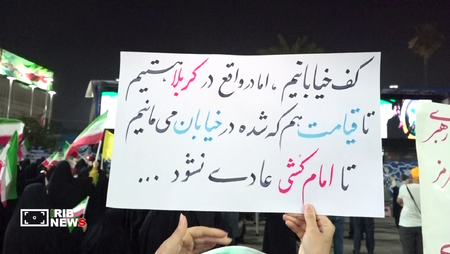 کف خیابانیم ، اما در واقع در کربلا هستیم
تا قیامت هم که شده در خیابان می مانیم
تا امام کشی عادی نشود ...
رهبری
رمز
IRIB
NEWS